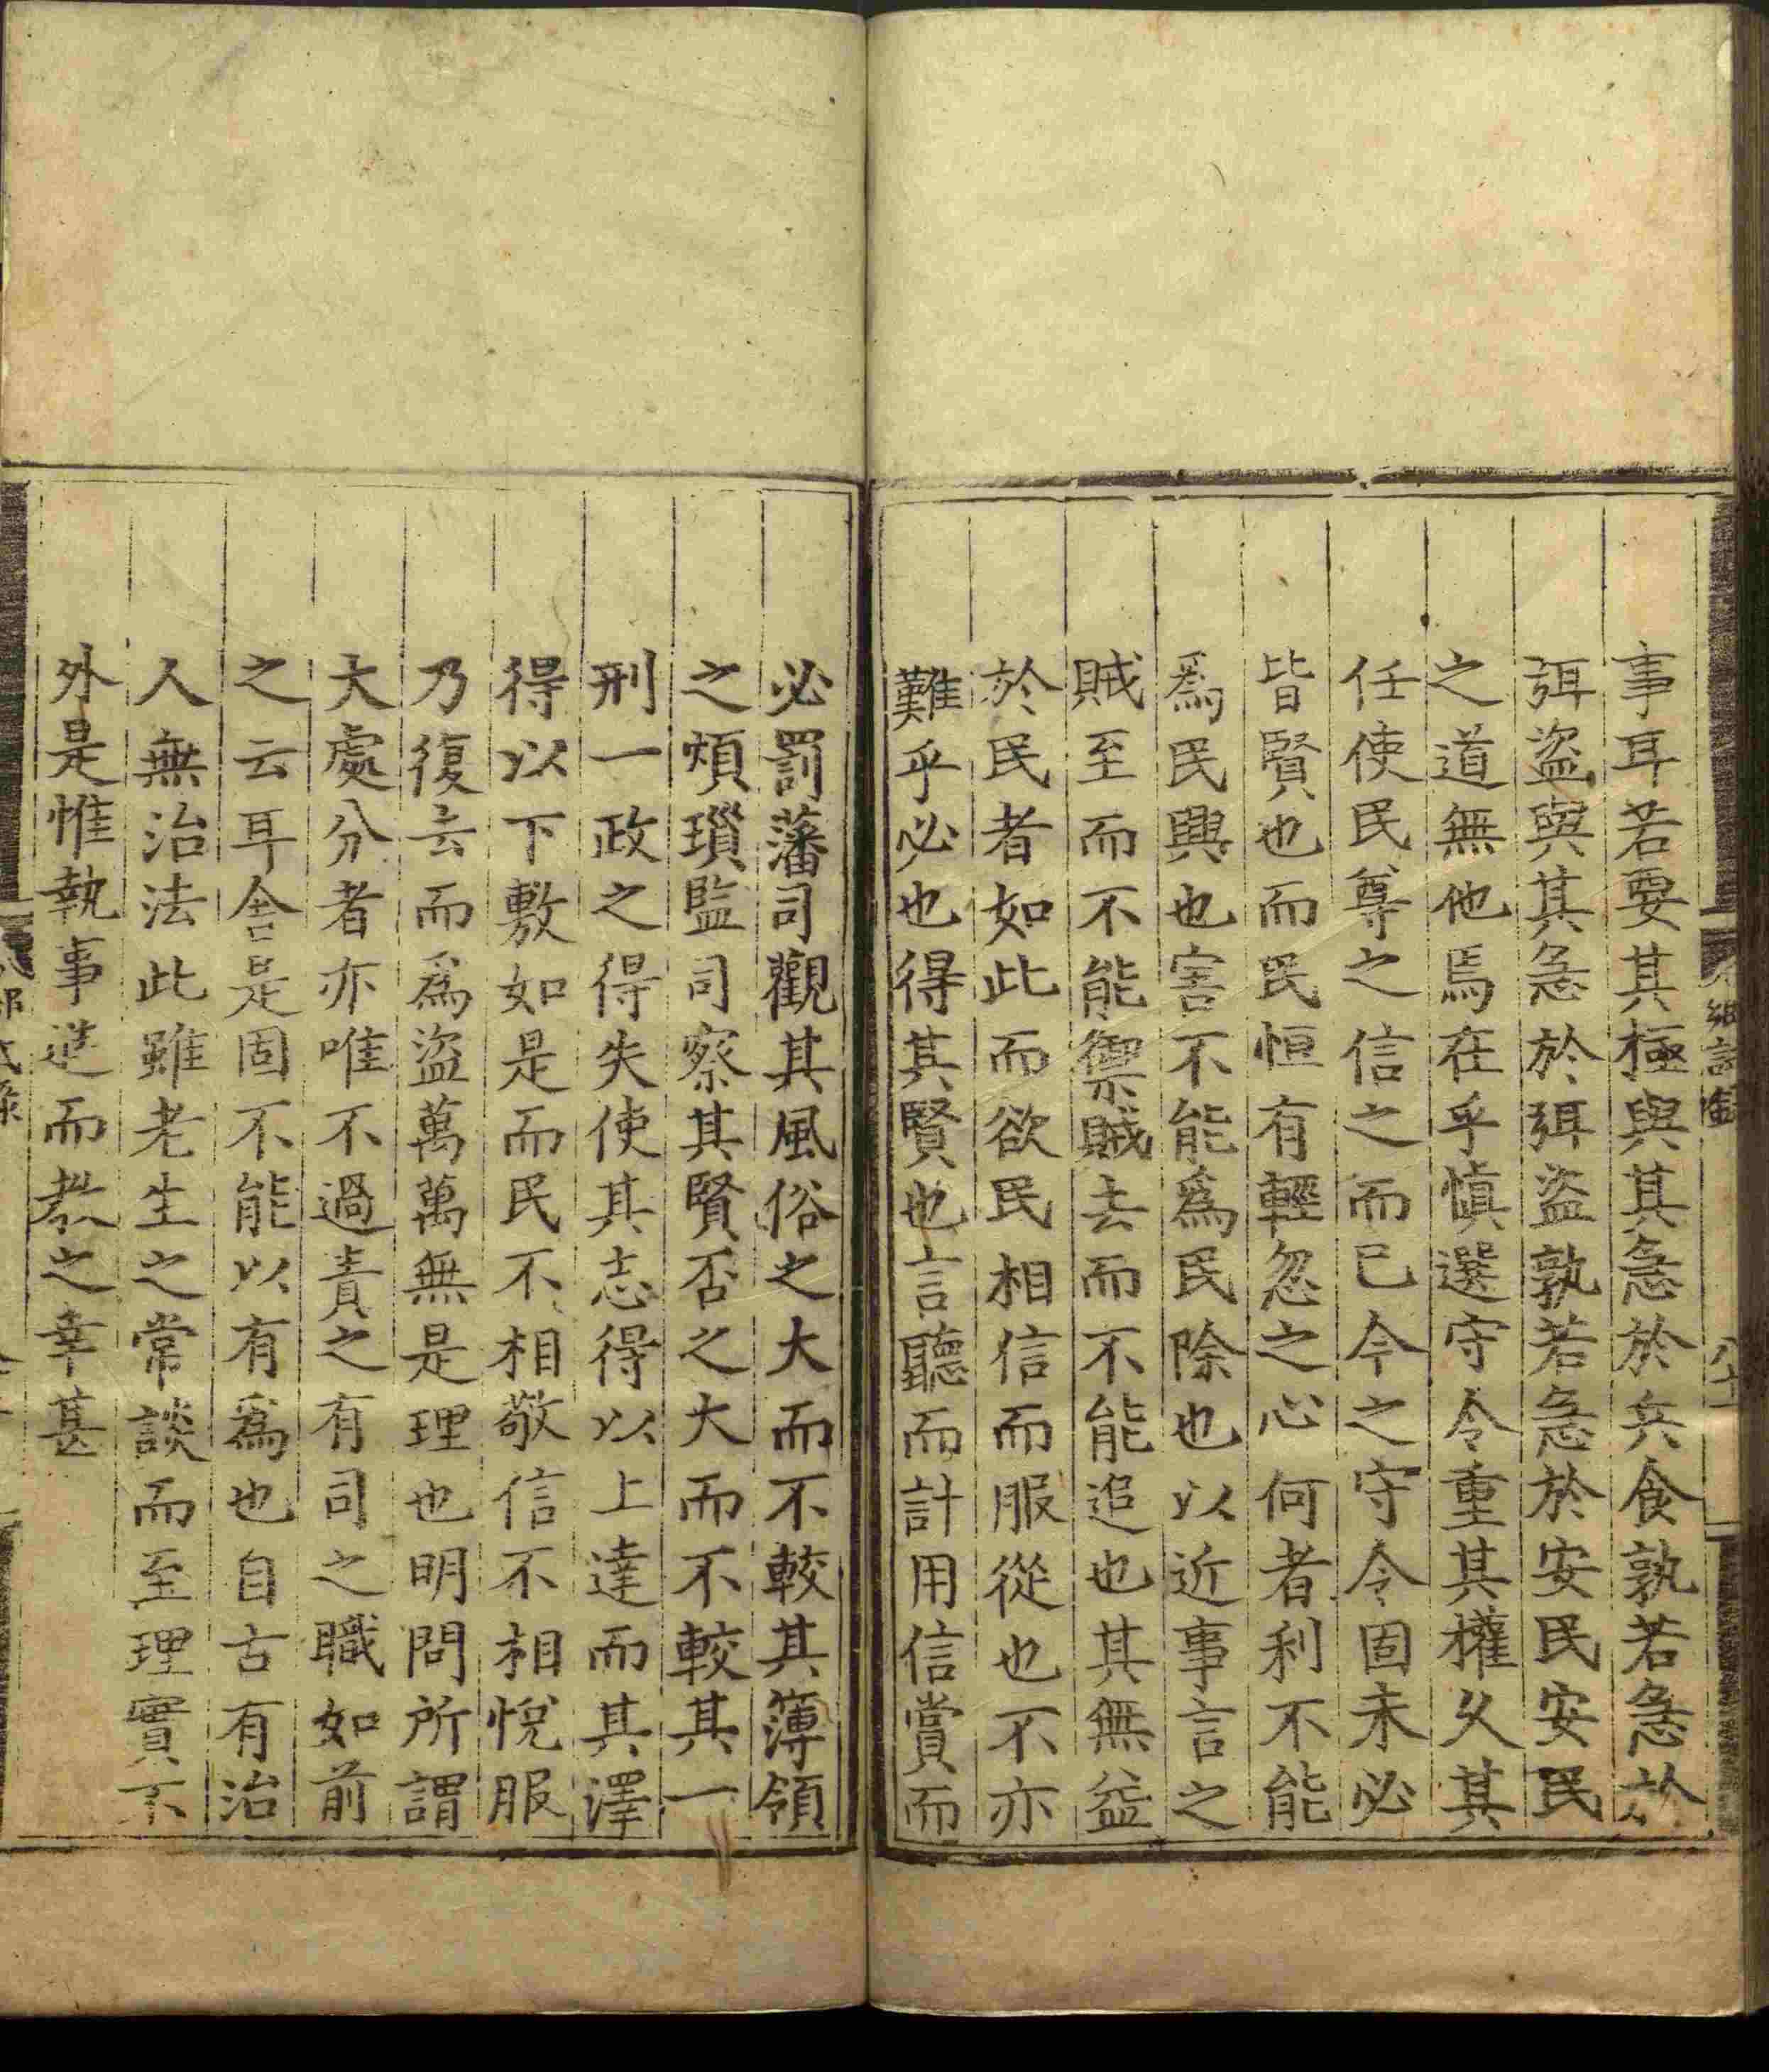 事耳若要其極與其急於兵食孰若急於
弭盜與其急於弭盜孰若急於安民安民
之道無他焉在乎慎選守令重其權久其
任使民尊之信之而已今之守令固未必
皆賢也而民恒有輕忽之心何者利不能
爲民興也害不能爲民除也以近事言之
賊至而不能禦賊去而不能追也其無益
於民者如此而欲民相信而服從也不亦
難乎必也得其賢也言聽而計用信賞而
必罰藩司觀其風俗之大而不較其簿領
之煩瑣監司察其賢否之大而不較其一
刑一政之得失使其志得以上達而其澤
得以下敷如是而民不相敬信不相悅服
乃復去而爲盜萬萬無是理也明問所謂
大處分者亦唯不過責之有司之職如前
之云耳舍是固不能以有爲也自古有治
人無治法此雖老生之常談而至理實不
外是惟執事進而教之幸甚